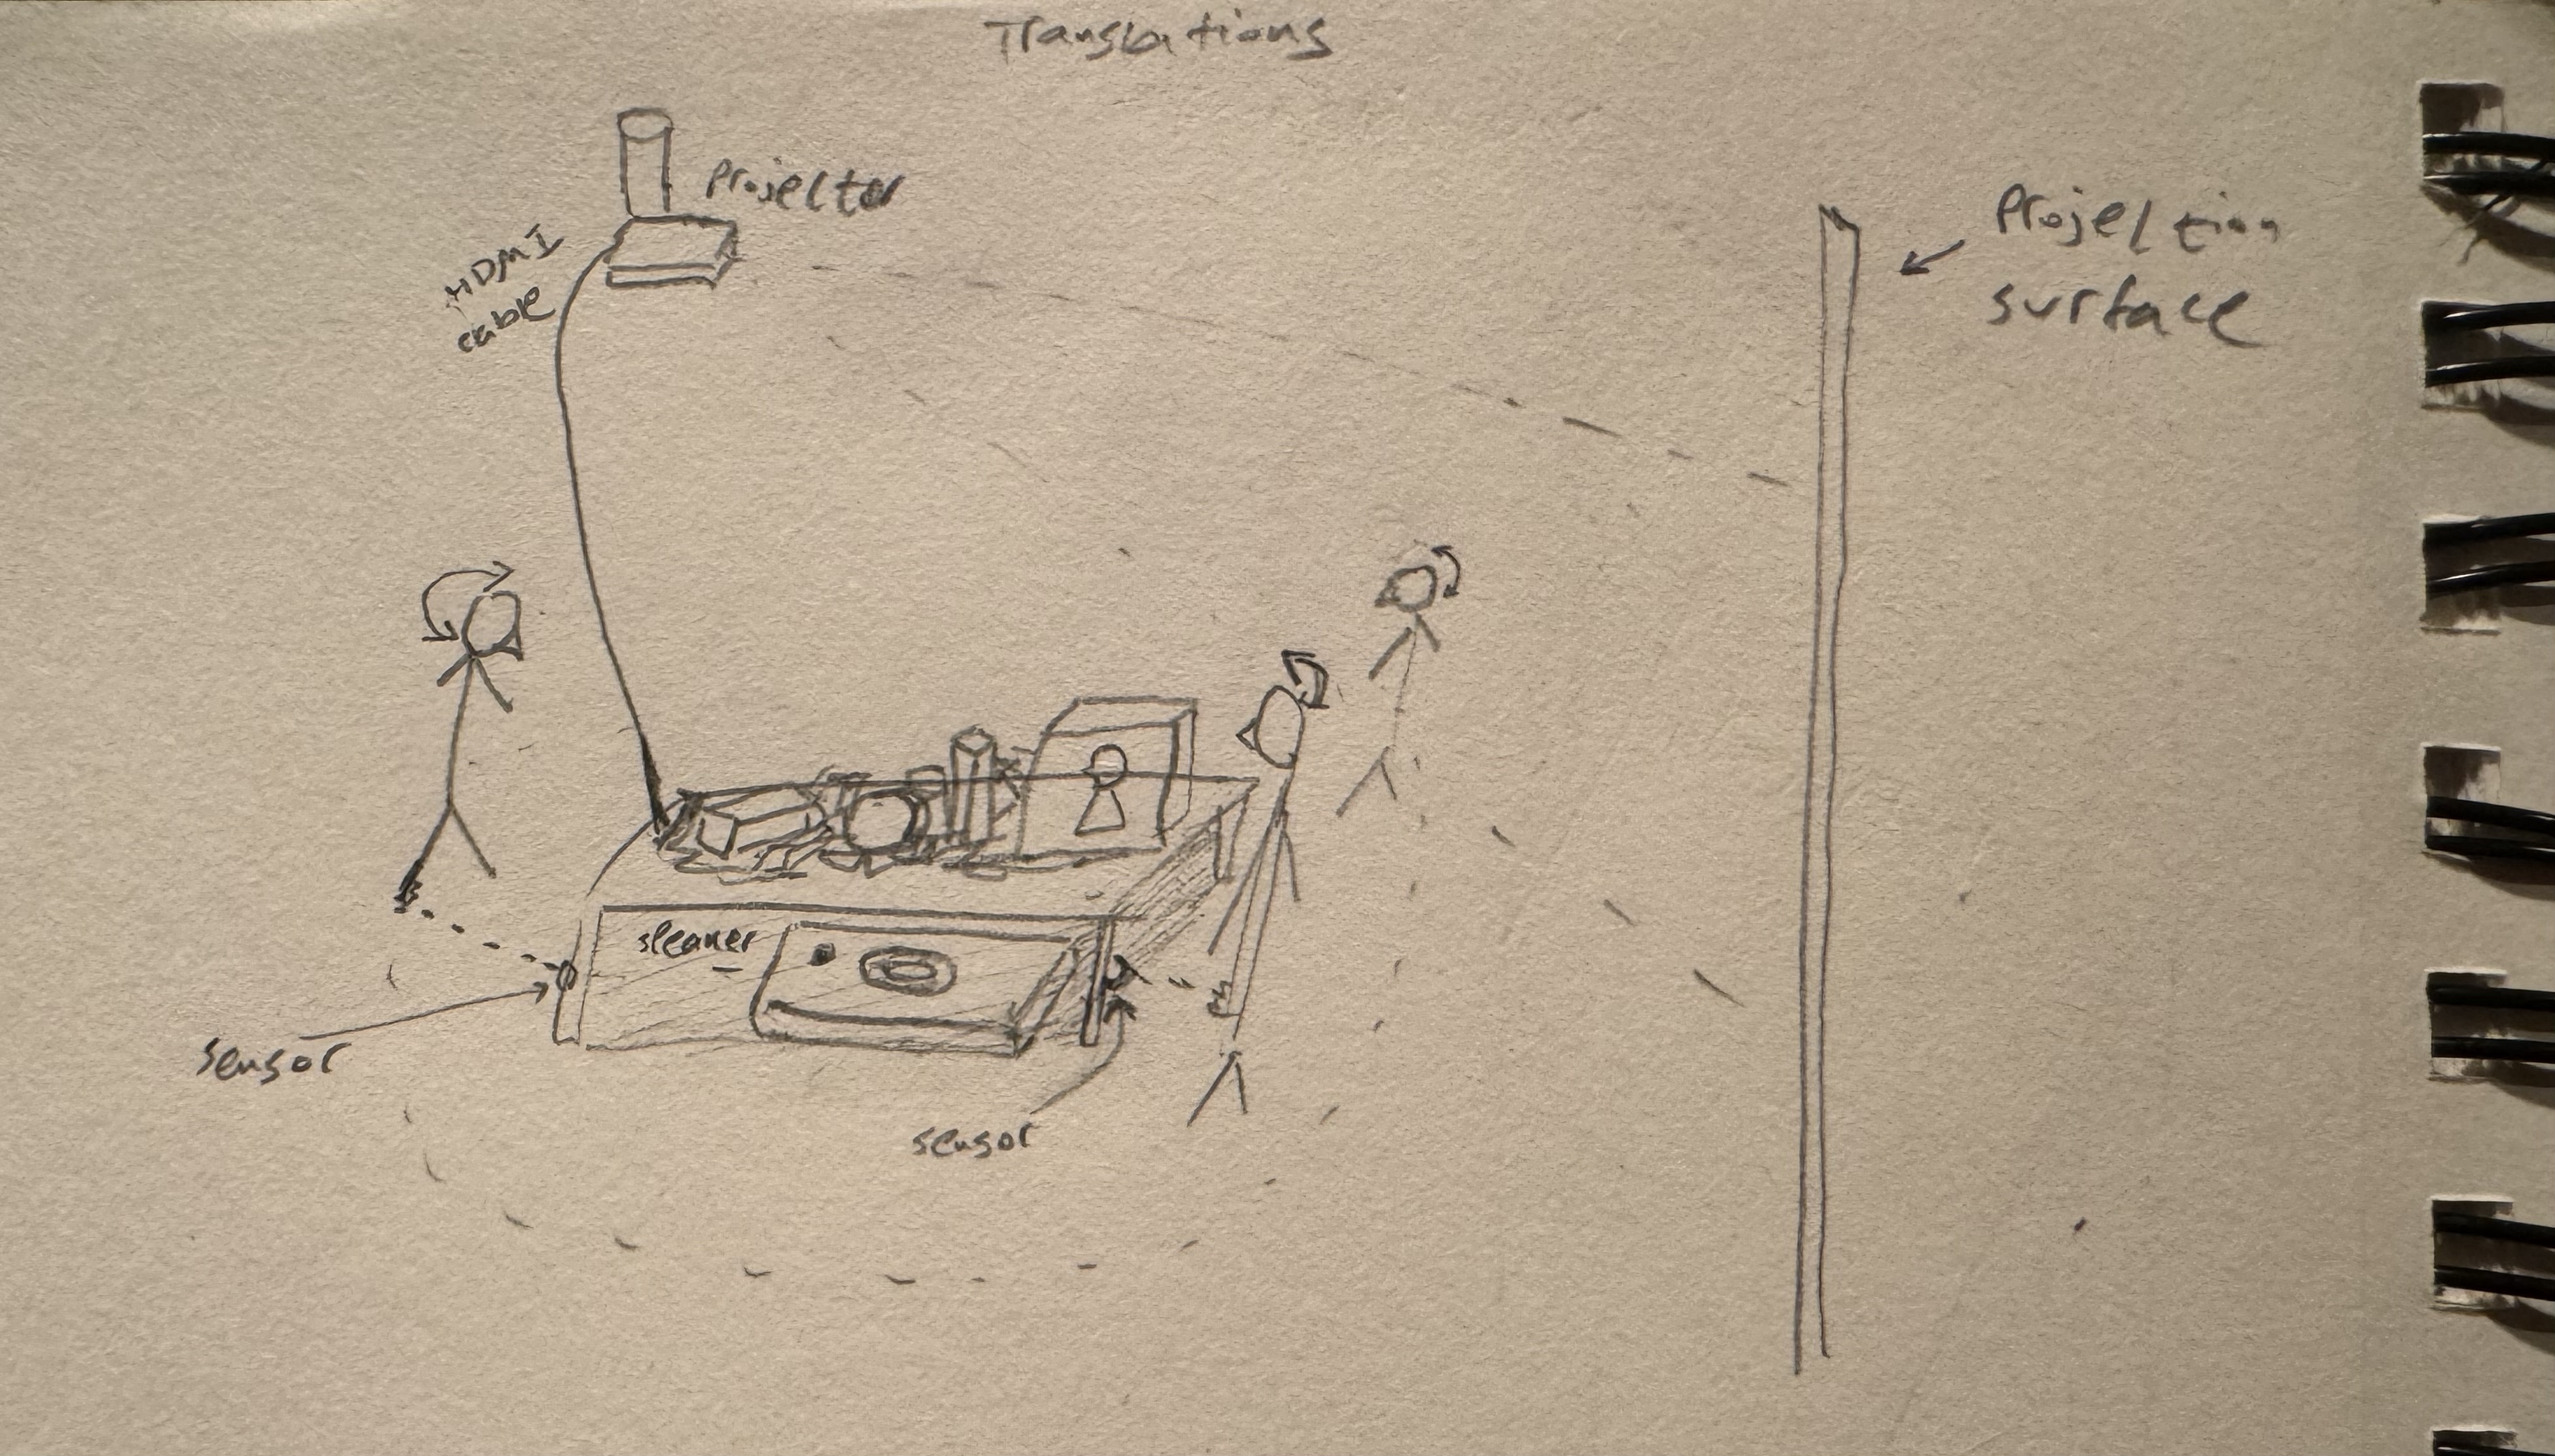 Translations
Projector
HDMI
cable
Projection
surface
speaker
sensor
sensor